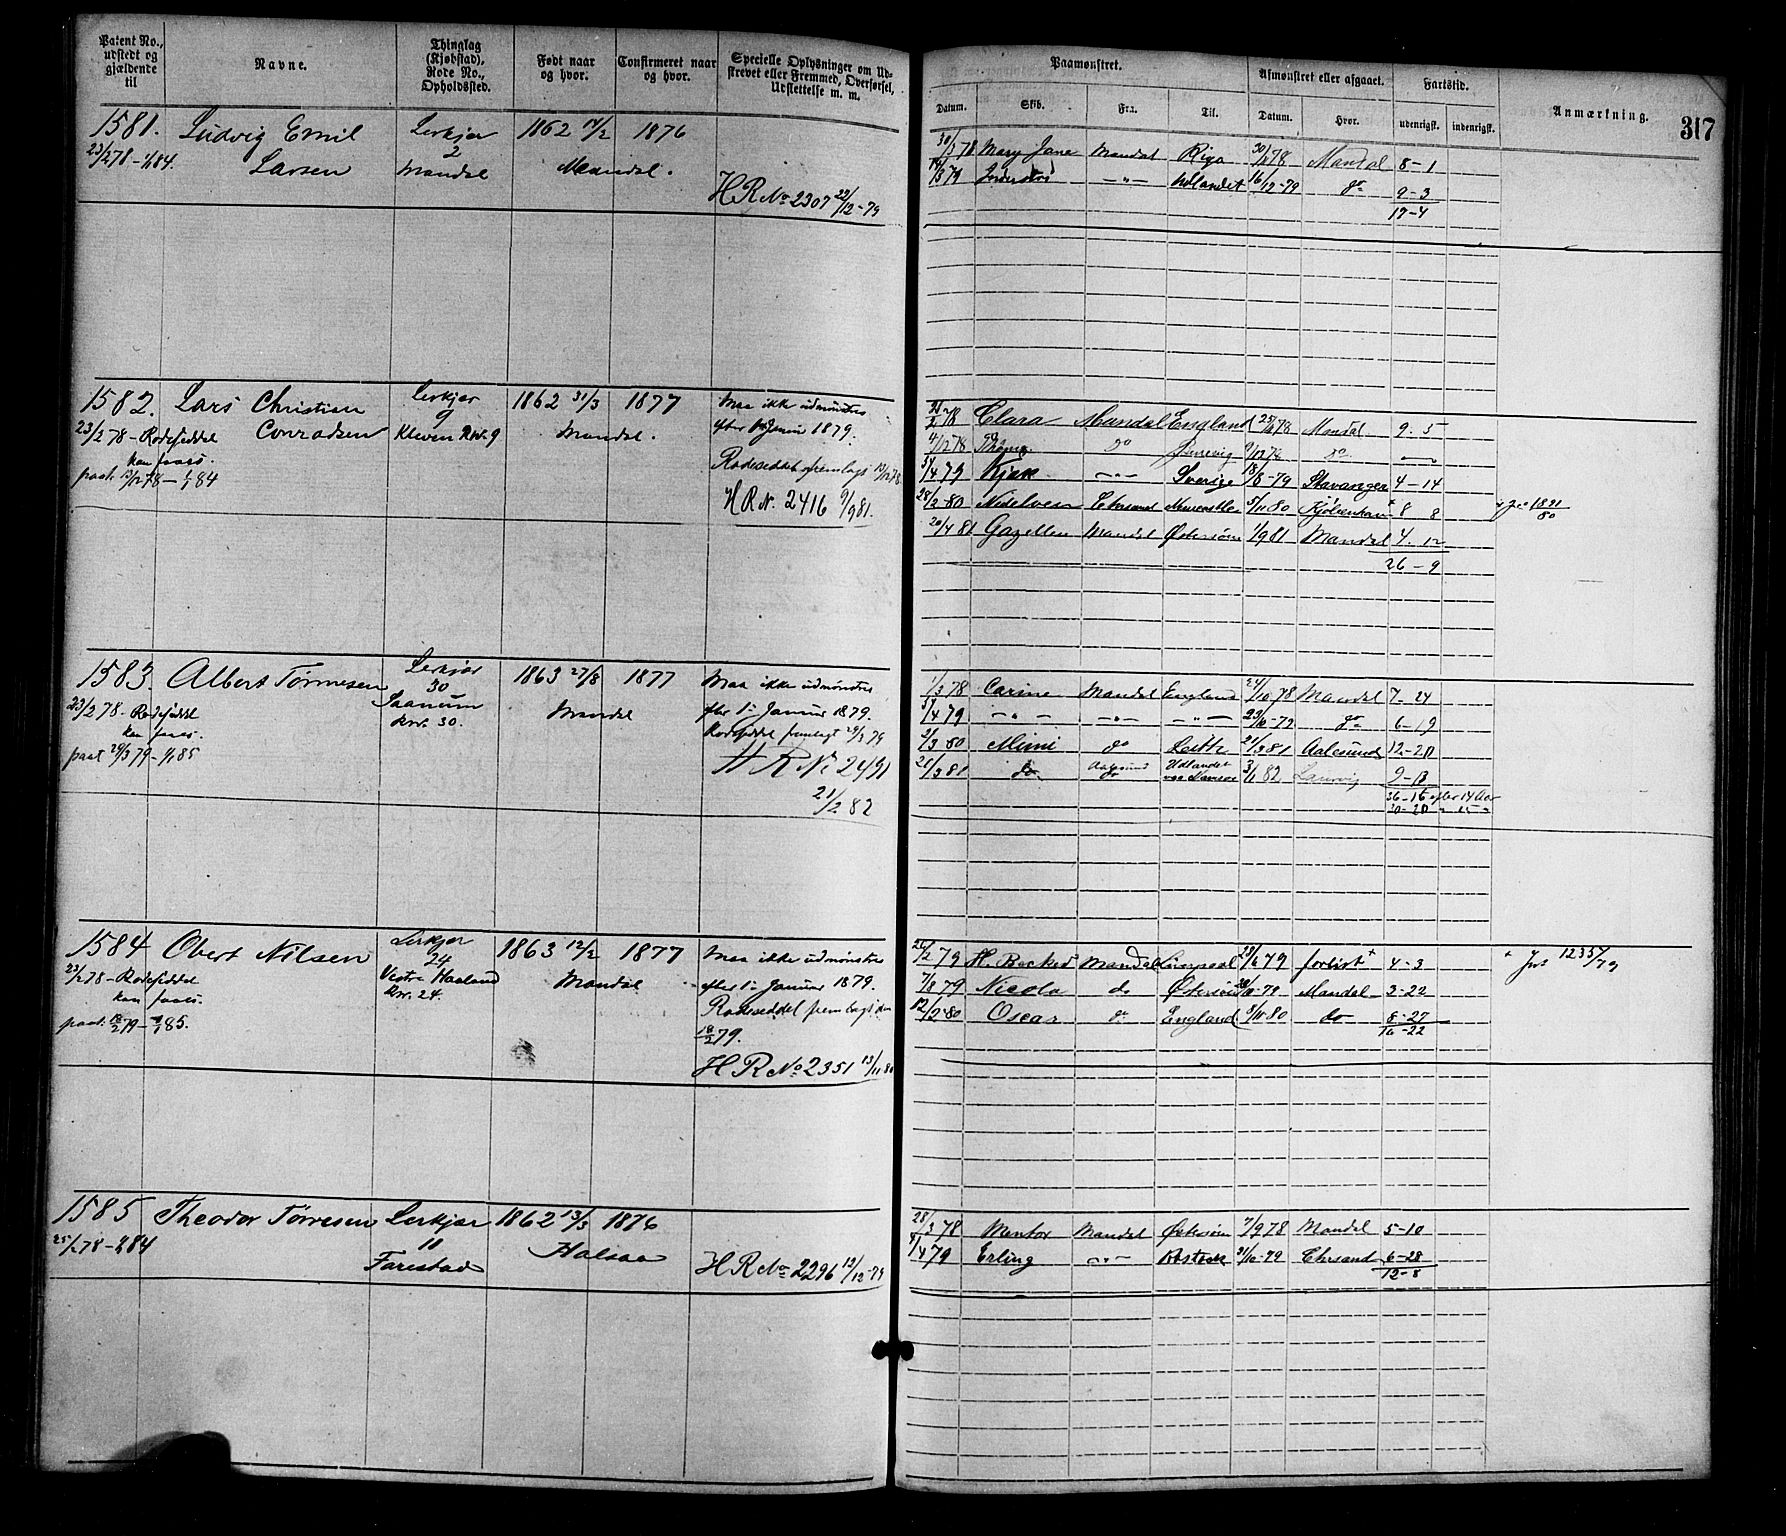 Patent No.,
udstedt og
gjældende
til
Navne.
Thinglag
(Kjøbstad),
Rode No.,
Opholdssted.
Født naar
og hvor.
Confirmeret naar
og hvor.
Specielle Oplysninger om Ud-
skrevet eller Fremmed, Overførsel,
Udslettelse m. m.
Paamønstret.
Datum.
Skib.
Fra.
Til.
Afmønstret eller afgaaet.
Datum.
Hvor.
Fartstid.
udenrigsk.
indenrigsk.
Anmærkning.
317
1581. Ludvig Emil
Larsen
23/2 78 - 1/1 84.
Lerkjær
2
Mandal
1862 1876
Mandal.
H R No 2307 22/12-79
30/3 78 Mary Jane Mandal Riga 30/ 78 Mandal 8-1
Udlandet 16/12-79 do 9-3
17-4
1582. Lars Christian
Conradsen
23/2 78 - Rodeseddel
kan faaes.
paat. 13/12 78 - 1/1 84
Lerkjær
9
Kleven Rode 9
1862 31/3 1877
Mandal.
Maa ikke udmønstres
efter 1ste Januar 1879.
Rodeseddel fremlagt 13/12 78
H R No. 2416 9/9 81.
Clara Mandal England 25/ 78 Mandal 9-5
4/12 78 do do
4 79 Sverige 18/8-79 Stavanger 4-14
28/2-80 Nidelven Chrsand Newcastle 5/11 80 Kjøbenhavn + 8 8
+ 1891/80
20/4 81 Gazellen Mandal Østersøen 1/9 81 Mandal 4. 12
26-9
1583. Albert Tørresen
23/2 78 - Rodeseddel
kan faaes.
paat 29/3 79 - 1/1 85
Lerkjær
30
Saanum
Rno. 30.
1863 27/8 1877
Mandal
Maa ikke udmønstres
efter 1ste Januar 1879.
Rodeseddel fremlagt 29/3 79
H R No 2491
21/2 82
1/3 78 Carine Mandal England 24/10 78 Mandal 7-24
4 79 - " - - " - - " - 23/10-79 do 6-19
2/3 80 Mimi do Leith 21/3 81 Aalesund 12-20
21/3 81 do Aalesund Udlandet 3/1 82 Laurvig 9-13
36-16 efter 14 Aar
1584 Obert Nilsen
23/2 78 - Rodeseddel
kan faaes.
paat. 18/2 79 - 1/1 85.
Lerkjær
24
Vestre Haaland
Rno. 24.
1863 12/2 1877
Mandal
Maa ikke udmønstres
efter 1ste Januar 1879.
Rodeseddel fremlagt den
18/2 79.
H R No 2351 13/11 80
26/2 79 Mandal Liverpool 28/6 79 forlist + 4-3
+ 1235/79
7/8 79 Nicola do Østersøen Mandal 3-22
12/2-80 Oscar do England 9/11 80 do 8-27
16-22
1585 Theodor Tørresen
25/2 78 - 1/1 84
Lerkjær
11
Farestad
1862 13/3 1876
Halsaa
H R No 2296 12/12-79
28/3 78 Mentor Mandal Østersøen 7/9 78 Mandal 5-10
4 79 Erling - " - 31/10-79 Chrsand 6-28
12-8